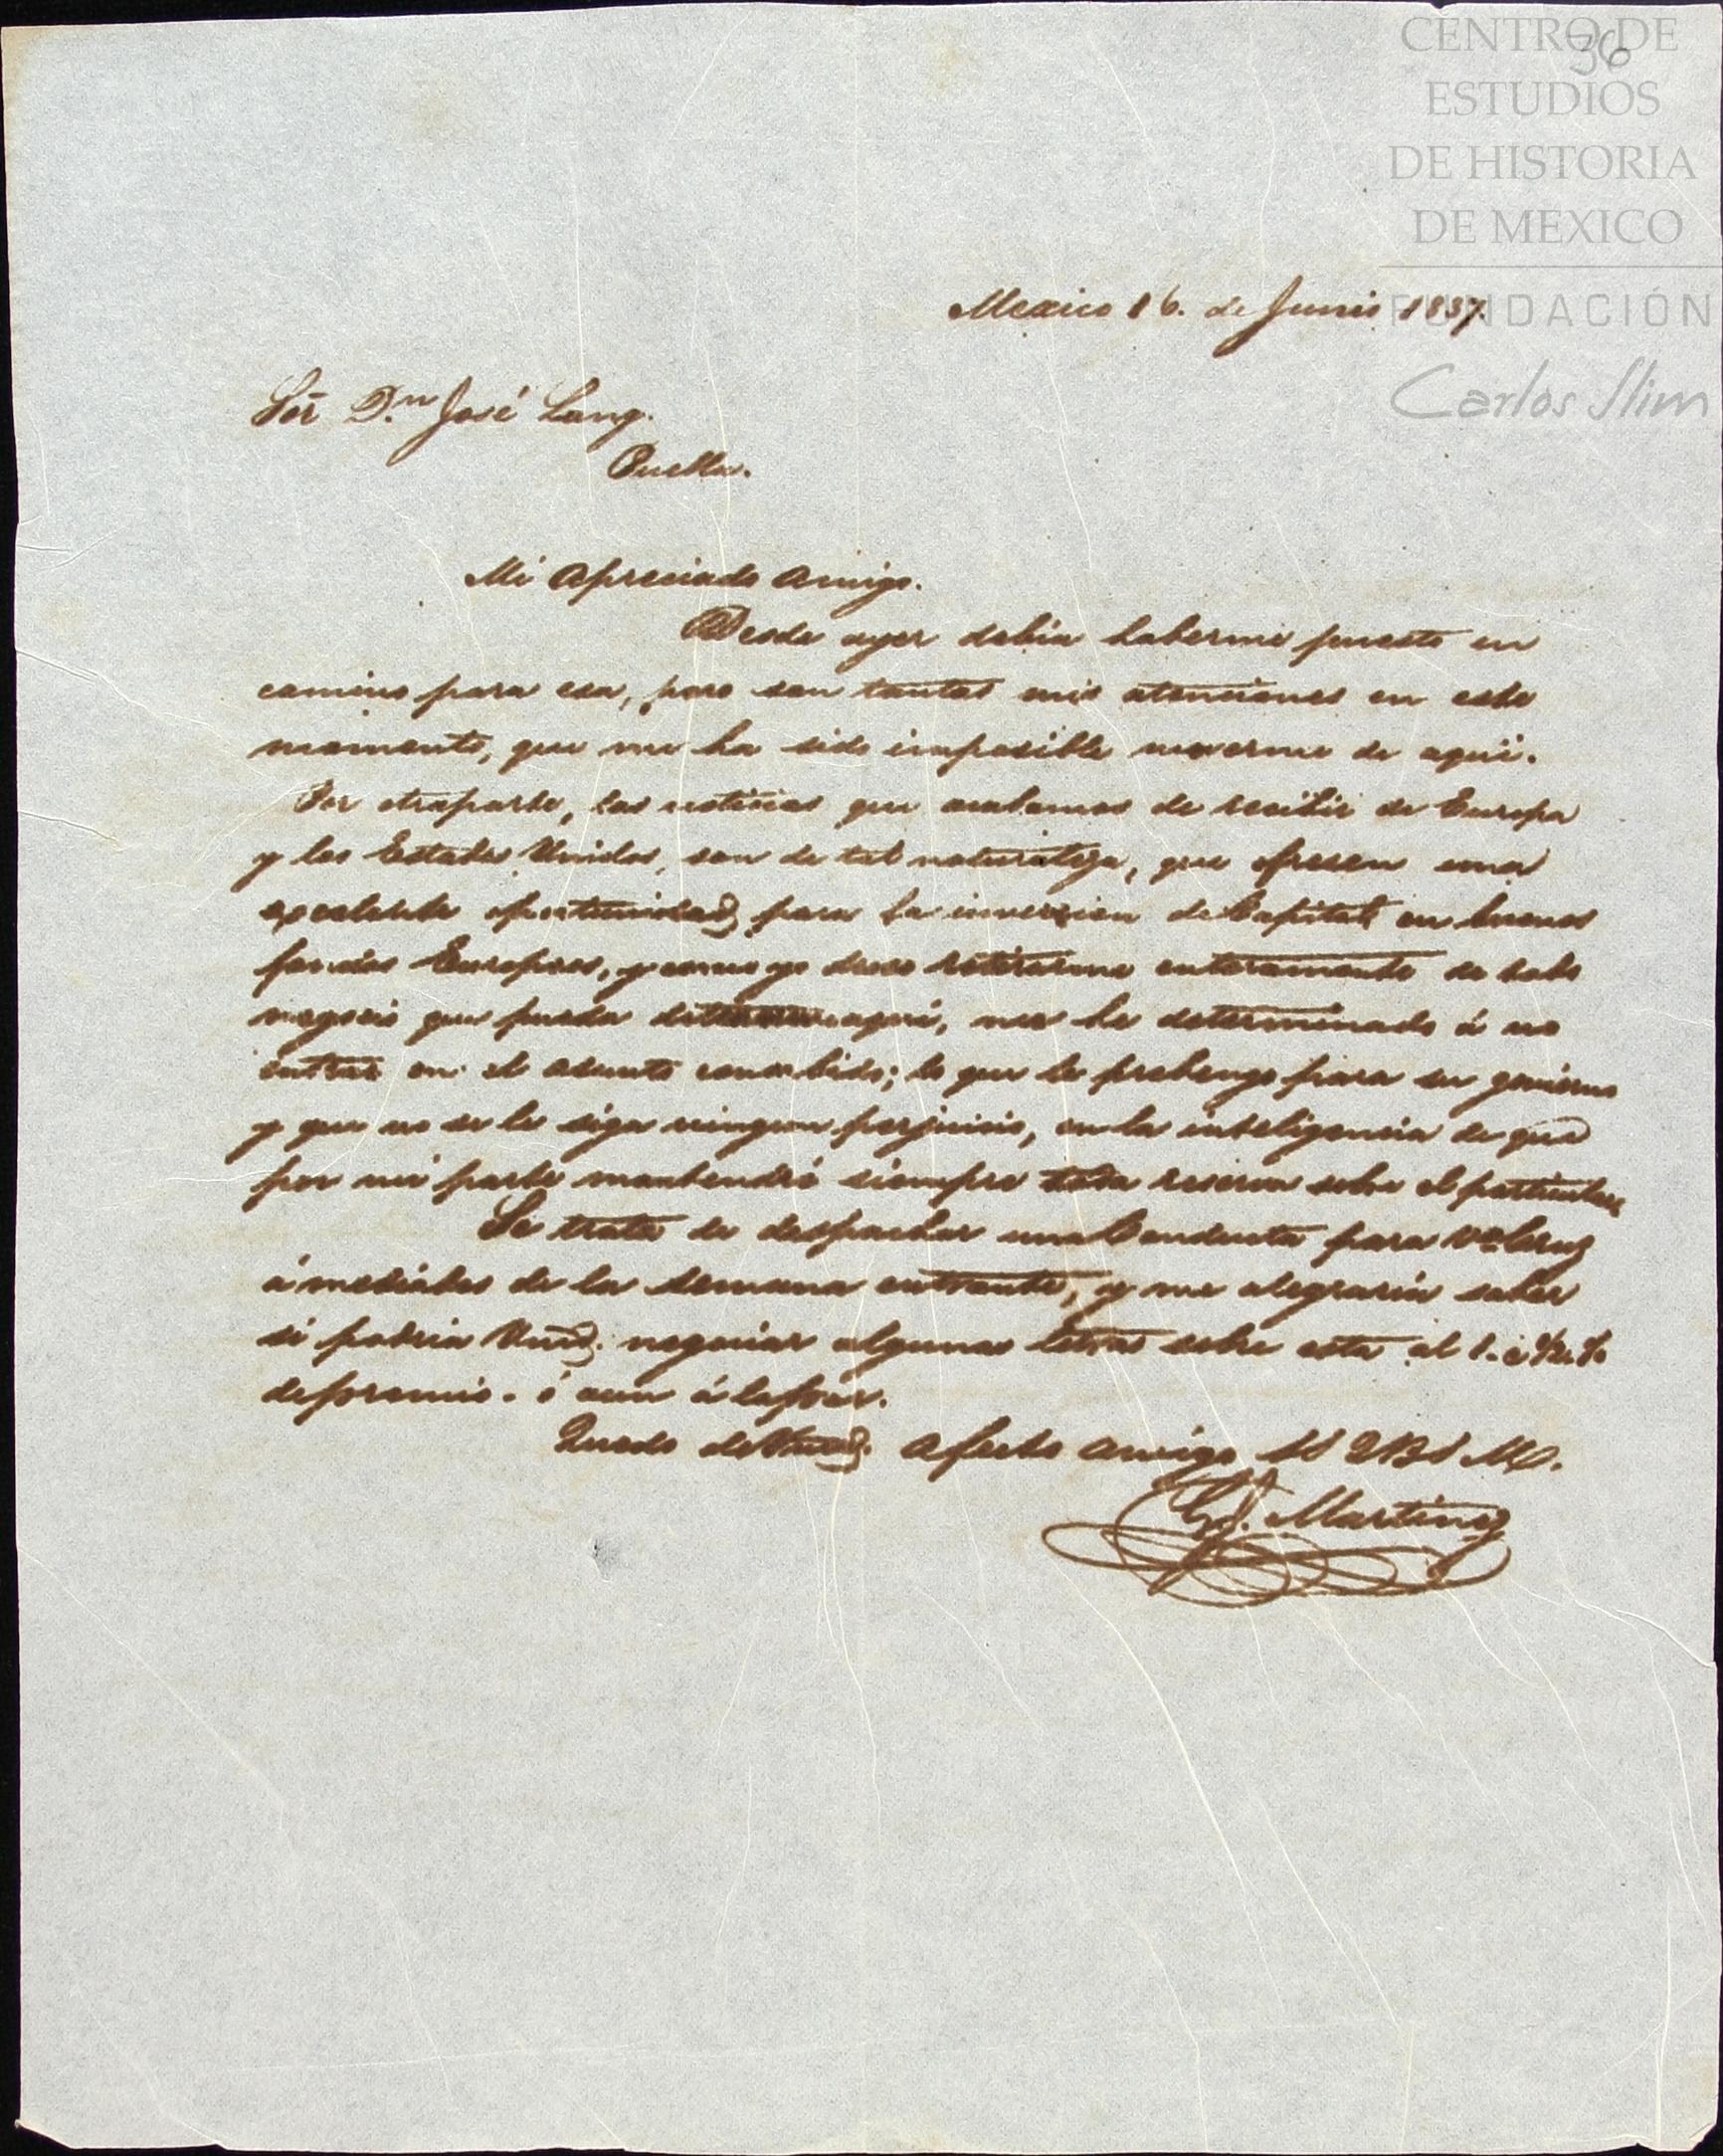 36
CENTRO DE
ESTUDIOS
DE HISTORIA
DE MEXICO
FUNDACIÓN
Carlos Slim
Mexico 16. de Junio 1837.
Sor. Dn. José Lang.
Puebla.
Mi Apreciado Amigo.
Desde ayer debia haberme puesto en
camino para esa, pero son tantas mis atenciones en este
momento, que me ha sido imposible moverme de aqui.
Por otra parte, las noticias que acabamos de recibir de Europa
y los Estados Unidos, son de tal naturaleza, que ofrecen una
excelente oportunidad para la inversion de Capital en buenos
fondos Europeos, y como yo deseo retirarme enteramente de todo
negocio que pueda aqui, me he determinado á no
entrar en el asunto consabido; lo que le prebengo para su govierno
y que no se le siga ningun perjuicio, en la inteligencia de que
por mi parte mantendré siempre toda reserva sobre el particular.
Se trata de despachar una Conducta para Va. Cruz
á mediados de la semana entrante, y me alegraria saber
si podria Vmd. negociar algunas letras sobre esta al 1. á 1/2. %
de premio. ó aun á la par.
Quedo de Vmd. afecto amigo SS Q B S M.
Martinez